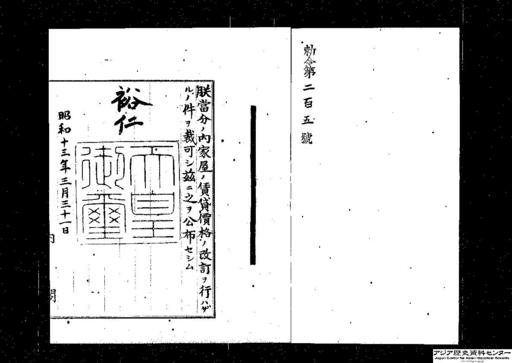 勅令第二百五號
朕當分ノ内家屋ノ賃貸價格ノ改訂ヲ行ハザ
ルノ件ヲ裁可シ茲ニ之ヲ公布セシム
裕仁
天皇
御璽
昭和十三年三月三十一日
内
閣
アジア歴史資料センター
Japan Center for Asian Historical Records